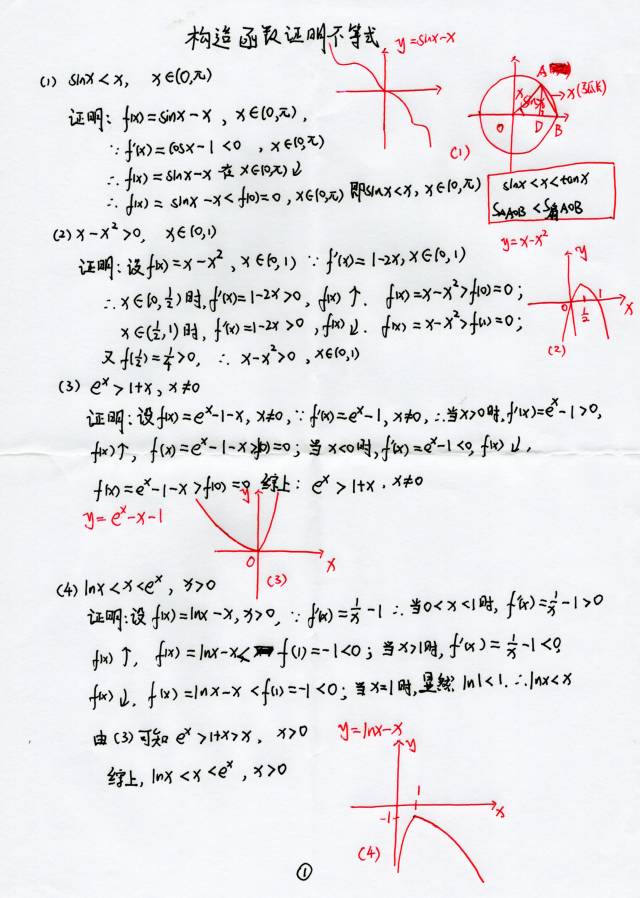 构造函数证明不等式
y=sinx-x
(1) sinx<x, x∈(0,π)
A
x
sinx
x(弧长)
O
D
B
证明: f(x)=sinx-x, x∈(0,π),
(1)
∵ f'(x)=cosx-1<0, x∈(0,π)
∴ f(x)=sinx-x 在 x∈(0,π)↓
∴ f(x)=sinx-x<f(0)=0, x∈(0,π) 即sinx<x, x∈(0,π)
sinx<x<tanx
S△AOB<S扇AOB
(2) x-x²>0, x∈(0,1)
y=x-x²
证明: 设f(x)=x-x², x∈(0,1) ∵ f'(x)=1-2x, x∈(0,1)
y
∴ x∈(0,1/2)时, f'(x)=1-2x>0, f(x)↑. f(x)=x-x²>f(0)=0;
0
1/2
1
x
x∈(1/2,1)时, f'(x)=1-2x>0, f(x)↓. f(x)=x-x²>f(1)=0;
(2)
又f(1/2)=1/4>0, ∴ x-x²>0, x∈(0,1)
(3) eˣ>1+x, x≠0
证明: 设f(x)=eˣ-1-x, x≠0, ∵ f'(x)=eˣ-1, x≠0, ∴当x>0时, f'(x)=eˣ-1>0,
f(x)↑, f(x)=eˣ-1-x>f(0)=0; 当x<0时, f'(x)=eˣ-1<0, f(x)↓,
f(x)=eˣ-1-x>f(0)=0 综上: eˣ>1+x, x≠0
y=eˣ-x-1
y
0
x
(3)
(4) lnx<x<eˣ, x>0
证明: 设f(x)=lnx-x, x>0, ∵ f'(x)=1/x-1 ∴ 当0<x<1时, f'(x)=1/x-1>0
f(x)↑, f(x)=lnx-x<f(1)=-1<0; 当x>1时, f'(x)=1/x-1<0
f(x)↓, f(x)=lnx-x<f(1)=-1<0; 当x=1时, 显然 ln1<1. ∴lnx<x
由(3)可知 eˣ>1+x>x, x>0
y=lnx-x
y
综上, lnx<x<eˣ, x>0
1
x
-1
(4)
①